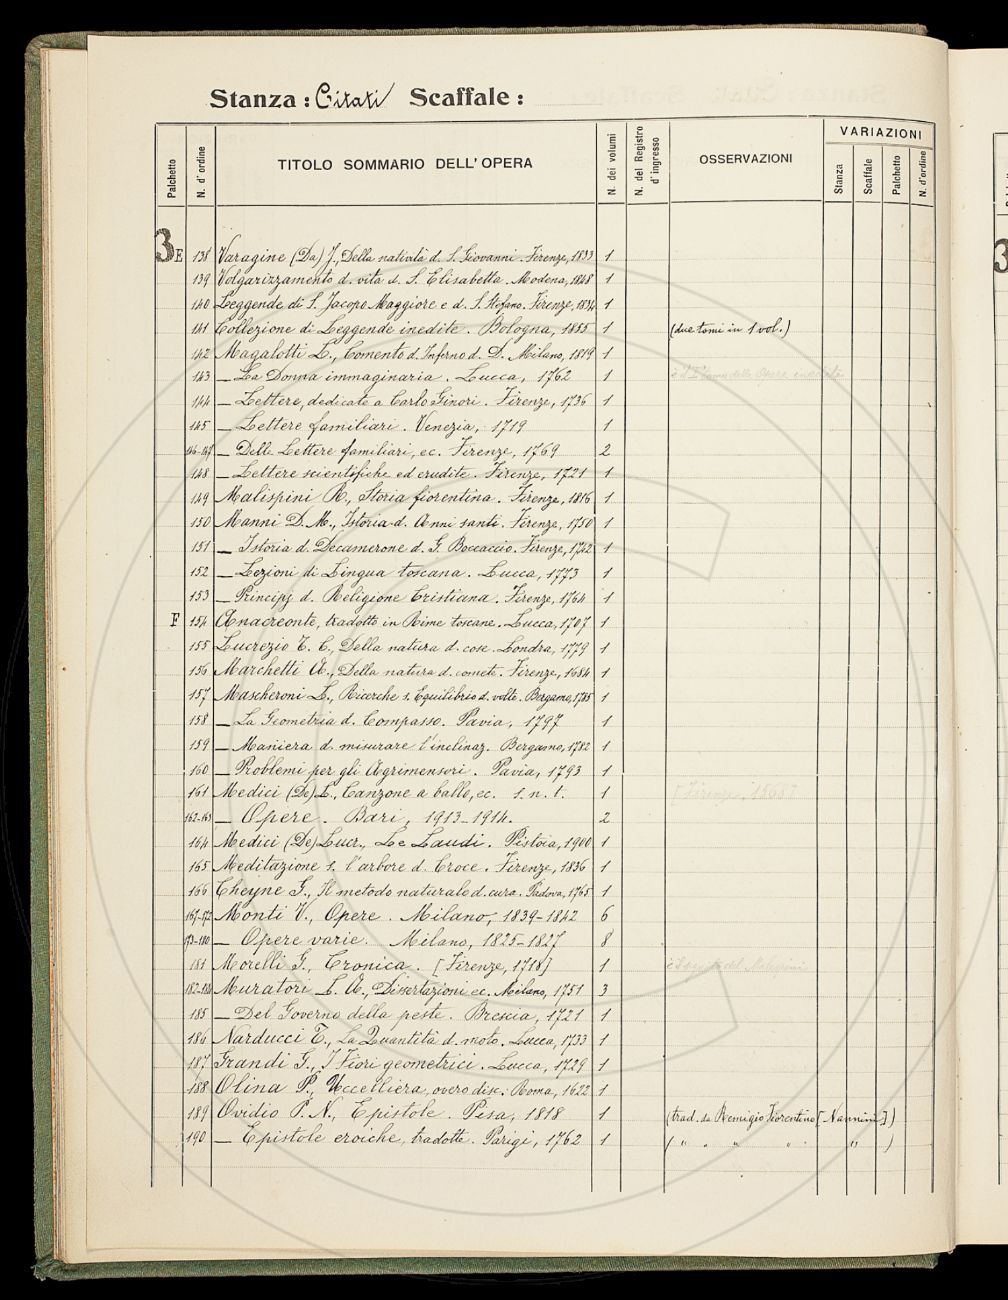 Stanza: Citati Scaffale:
Palchetto N. d'ordine TITOLO SOMMARIO DELL'OPERA N. dei volumi N. del Registro d'ingresso OSSERVAZIONI VARIAZIONI
Stanza Scaffale Palchetto N. d'ordine
3 E 138 Varagine (Da) J., Della natività d. S. Giovanni. Firenze, 1833 1
139 Volgarizzamento d. vita d. S. Elisabetta. Modena, 1848 1
140 Leggende di S. Jacopo Maggiore e d. S. Stefano. Firenze, 1834 1
141 Collezione di Leggende inedite. Bologna, 1855 1 (due tomi in 1 vol.)
142 Magalotti L., Comento d. Inferno d. D. Milano, 1819 1
143 — La Donna immaginaria. Lucca, 1762 1 è il I tomo delle Opere
144 — Lettere, dedicate a Carlo Ginori. Firenze, 1736 1
145 — Lettere familiari. Venezia, 1719 1
146-147 — Delle Lettere familiari, ec. Firenze, 1769 2
148 — Lettere scientifiche ed erudite. Firenze, 1721 1
149 Malispini R., Storia fiorentina. Firenze, 1816 1
150 Manni D. M., Istoria d. Anni santi. Firenze, 1750 1
151 — Istoria d. Decamerone d. G. Boccaccio. Firenze, 1742 1
152 — Lezioni di Lingua toscana. Lucca, 1773 1
153 — Principj d. Religione Cristiana. Firenze, 1764 1
F 154 Anacreonte, tradotto in Rime toscane. Lucca, 1707 1
155 Lucrezio T. C., Della natura d. cose. Londra, 1779 1
156 Marchetti A., Della natura d. comete. Firenze, 1684 1
157 Mascheroni L., Ricerche s. Equilibrio d. volte. Bergamo, 1785 1
158 — La Geometria d. Compasso. Pavia, 1797 1
159 — Maniera d. misurare l'inclinaz. Bergamo, 1782 1
160 — Problemi per gli Agrimensori. Pavia, 1793 1
161 Medici (De) L., Canzone a ballo, ec. s. n. t. 1 [Firenze, 1568]
162-163 — Opere. Bari, 1913-1914. 2
164 Medici (De) Lucr., Le Laudi. Pistoia, 1900 1
165 Meditazione s. l'arbore d. Croce. Firenze, 1836 1
166 Cheyne G., Il metodo naturale d. cura. Padova, 1765 1
167-172 Monti V., Opere. Milano, 1839-1842 6
173-180 — Opere varie. Milano, 1825-1827 8
181 Morelli G., Cronica. [Firenze, 1718] 1
182-184 Muratori L. A., Dissertazioni ec. Milano, 1751 3
185 — Del Governo della peste. Brescia, 1721 1
186 Narducci T., La Quantità d. moto. Lucca, 1733 1
187 Grandi G., I Fiori geometrici. Lucca, 1729 1
188 Olina P., Uccelliera, overo disc. Roma, 1622 1
189 Ovidio P. N., Epistole. Pisa, 1818 1 (trad. da Remigio Fiorentino [Nannini])
190 — Epistole eroiche, tradotte. Parigi, 1762 1 ( " " " " " )